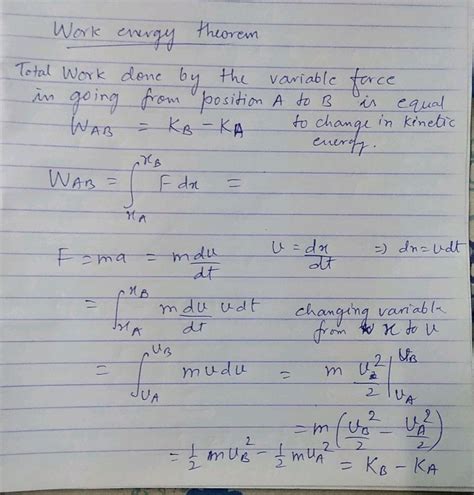 Work energy theorem
Total Work done by the variable force
in going from position A to B is equal
W_AB = K_B - K_A to change in kinetic
energy.
W_AB = ∫_{x_A}^{x_B} F dx =
F = ma = m du/dt u = dx/dt => dx = udt
= ∫_{x_A}^{x_B} m du/dt udt changing variable
from x to u
= ∫_{u_A}^{u_B} m u du = m u²/2 |_{u_A}^{u_B}
= m (u_B²/2 - u_A²/2)
= 1/2 m u_B² - 1/2 m u_A² = K_B - K_A